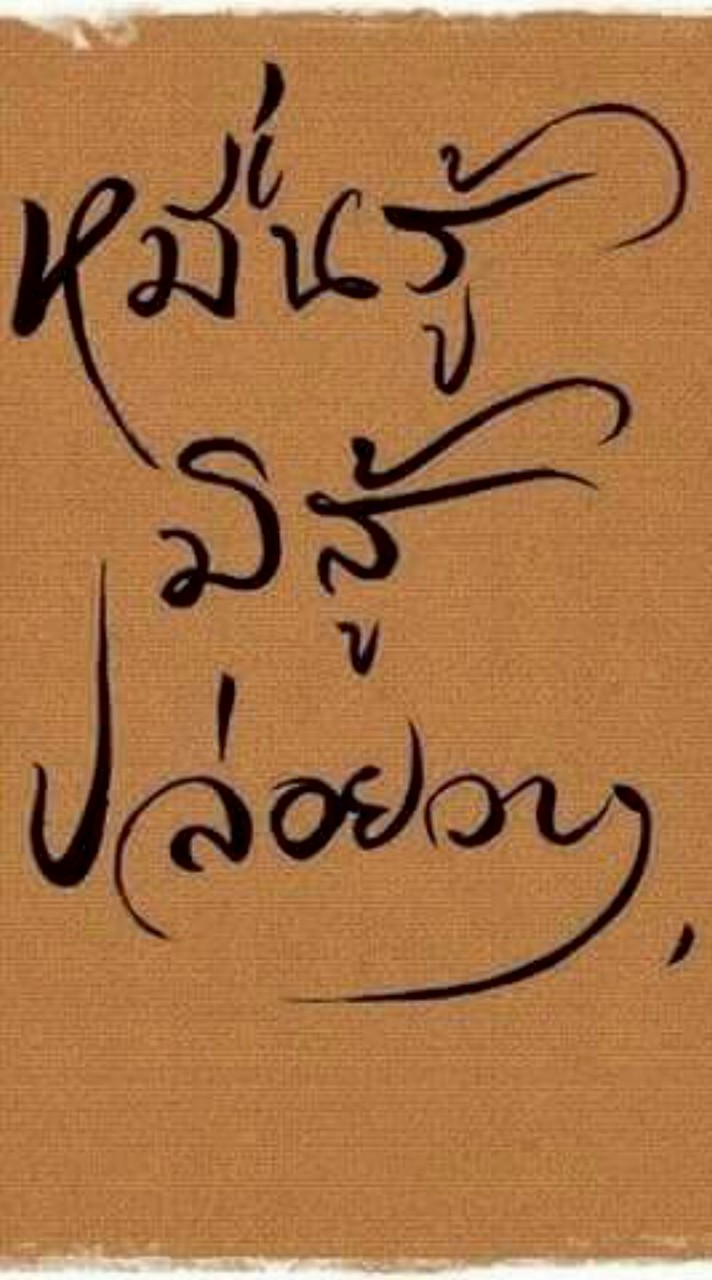 หมื่นรู้
มิสู้
ปล่อยวาง